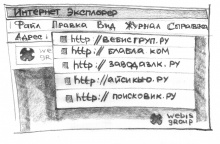 Интернет Эксплорер
Файл Правка Вид Журнал Справка
Адрес:
http://вебисгруп.ру
http://главпа ком
http://заводазлк.ру
http://айсикью.ру
http://поисковик.ру
webis
group
webis
group